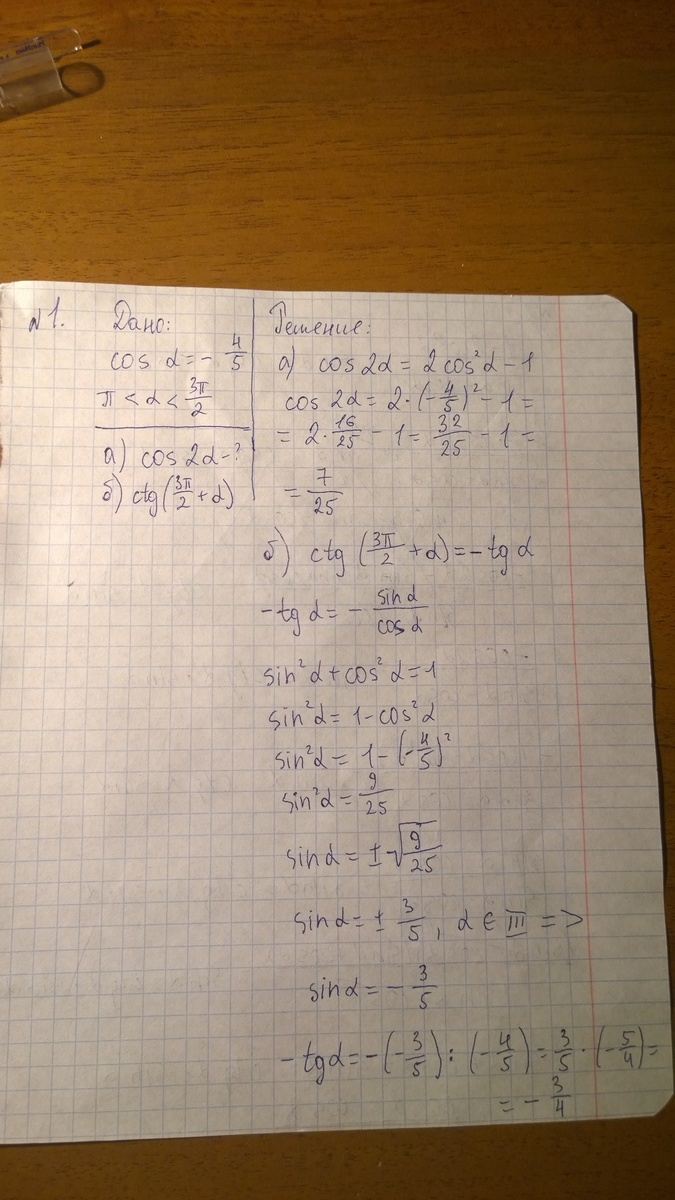 №1.
Дано:
cos α = - 4/5
π < α < 3π/2
а) cos 2α - ?
б) ctg(3π/2 + α)
Решение:
а) cos 2α = 2cos²α - 1
cos 2α = 2·(-4/5)² - 1 =
= 2·16/25 - 1 = 32/25 - 1 =
= 7/25
б) ctg(3π/2 + α) = - tg α
- tg α = - sin α/cos α
sin²α + cos²α = 1
sin²α = 1 - cos²α
sin²α = 1 - (-4/5)²
sin²α = 9/25
sin α = ± √(9/25)
sin α = ± 3/5, α ∈ III =>
sin α = - 3/5
- tg α = -(-3/5) : (-4/5) = 3/5 · (-5/4) =
= - 3/4